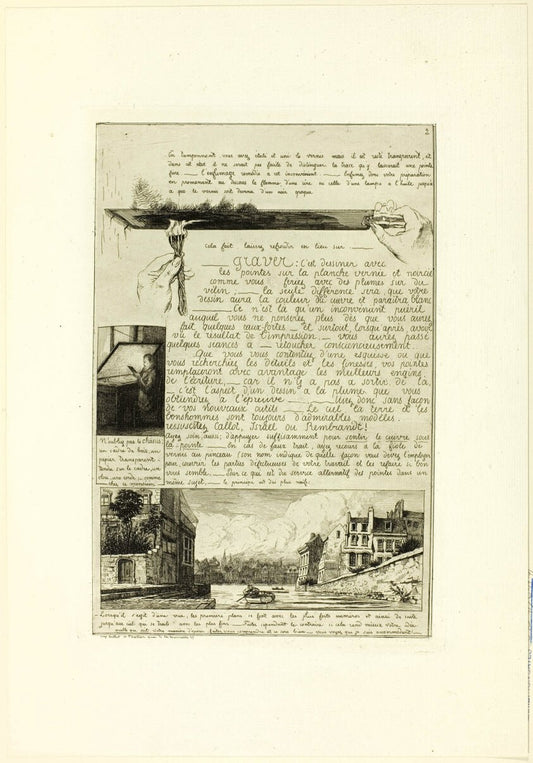 2
En tamponnant vous avez étalé et uni le vernis mais il est resté transparent, et
dans cet état il ne serait pas facile de distinguer la trace qu'y laisserait une pointe
fine — l'enfumage remédie à cet inconvénient — Enfumez donc votre préparation
en promenant au dessous la flamme d'une cire ou celle d'une lampe à l'huile jusqu'à
ce que le vernis soit devenu d'un noir
cela fait laissez refroidir en lieu sûr
GRAVER : c'est dessiner avec
les pointes sur la planche vernie et noircie
comme vous feriez avec des plumes sur du
vélin, — la seule différence sera que votre
dessin aura la couleur du cuivre et paraîtra blanc
— Ce n'est là qu'un inconvénient puéril
auquel vous ne penserez plus dès que vous aurez
fait quelques eaux-fortes — et surtout, lorsqu'après avoir
vu le résultat de l'impression — vous aurez passé
quelques séances à — retoucher consciencieusement
Que vous vous contentiez d'une esquisse ou que
vous recherchiez les détails et les finesses, vos pointes
remplaceront avec avantage les meilleurs engins
de l'écriture — car il n'y a pas à sortir de là,
c'est l'aspect d'un dessin à la plume que vous
obtiendrez à l'épreuve — Usez donc sans façon
de vos nouveaux outils — Le ciel la terre et les
bonshommes sont toujours d'admirables modèles.
ressuscitez Callot, Israël ou Rembrandt!
Ayez soin, aussi, d'appuyer suffisamment pour sentir le cuivre sous
la pointe — En cas de faux trait, ayez recours à la fiole de
vernis au pinceau son nom indique de quelle façon vous devez l'employer
pour couvrir les parties défectueuses de votre travail et les refaire si bon
vous semble. — Pour ce qui est du service alternatif des pointes dans un
même sujet — le principe est des plus naïfs.
N'oubliez pas le chassis
un cadre de bois, un
papier transparent
tendu sur le cadre, un
clou, une corde — comme
chez ce monsieur
Lorsqu'il s'agit d'une vue, les premiers plans se font avec les plus forts numéros et ainsi de suite
jusqu'au ciel qui se traite avec les plus fins — Faites cependant le contraire si cela rend mieux votre idée
quelle que soit votre manière d'opérer faites vous comprendre et ce sera bien — vous voyez que je suis accommodant —